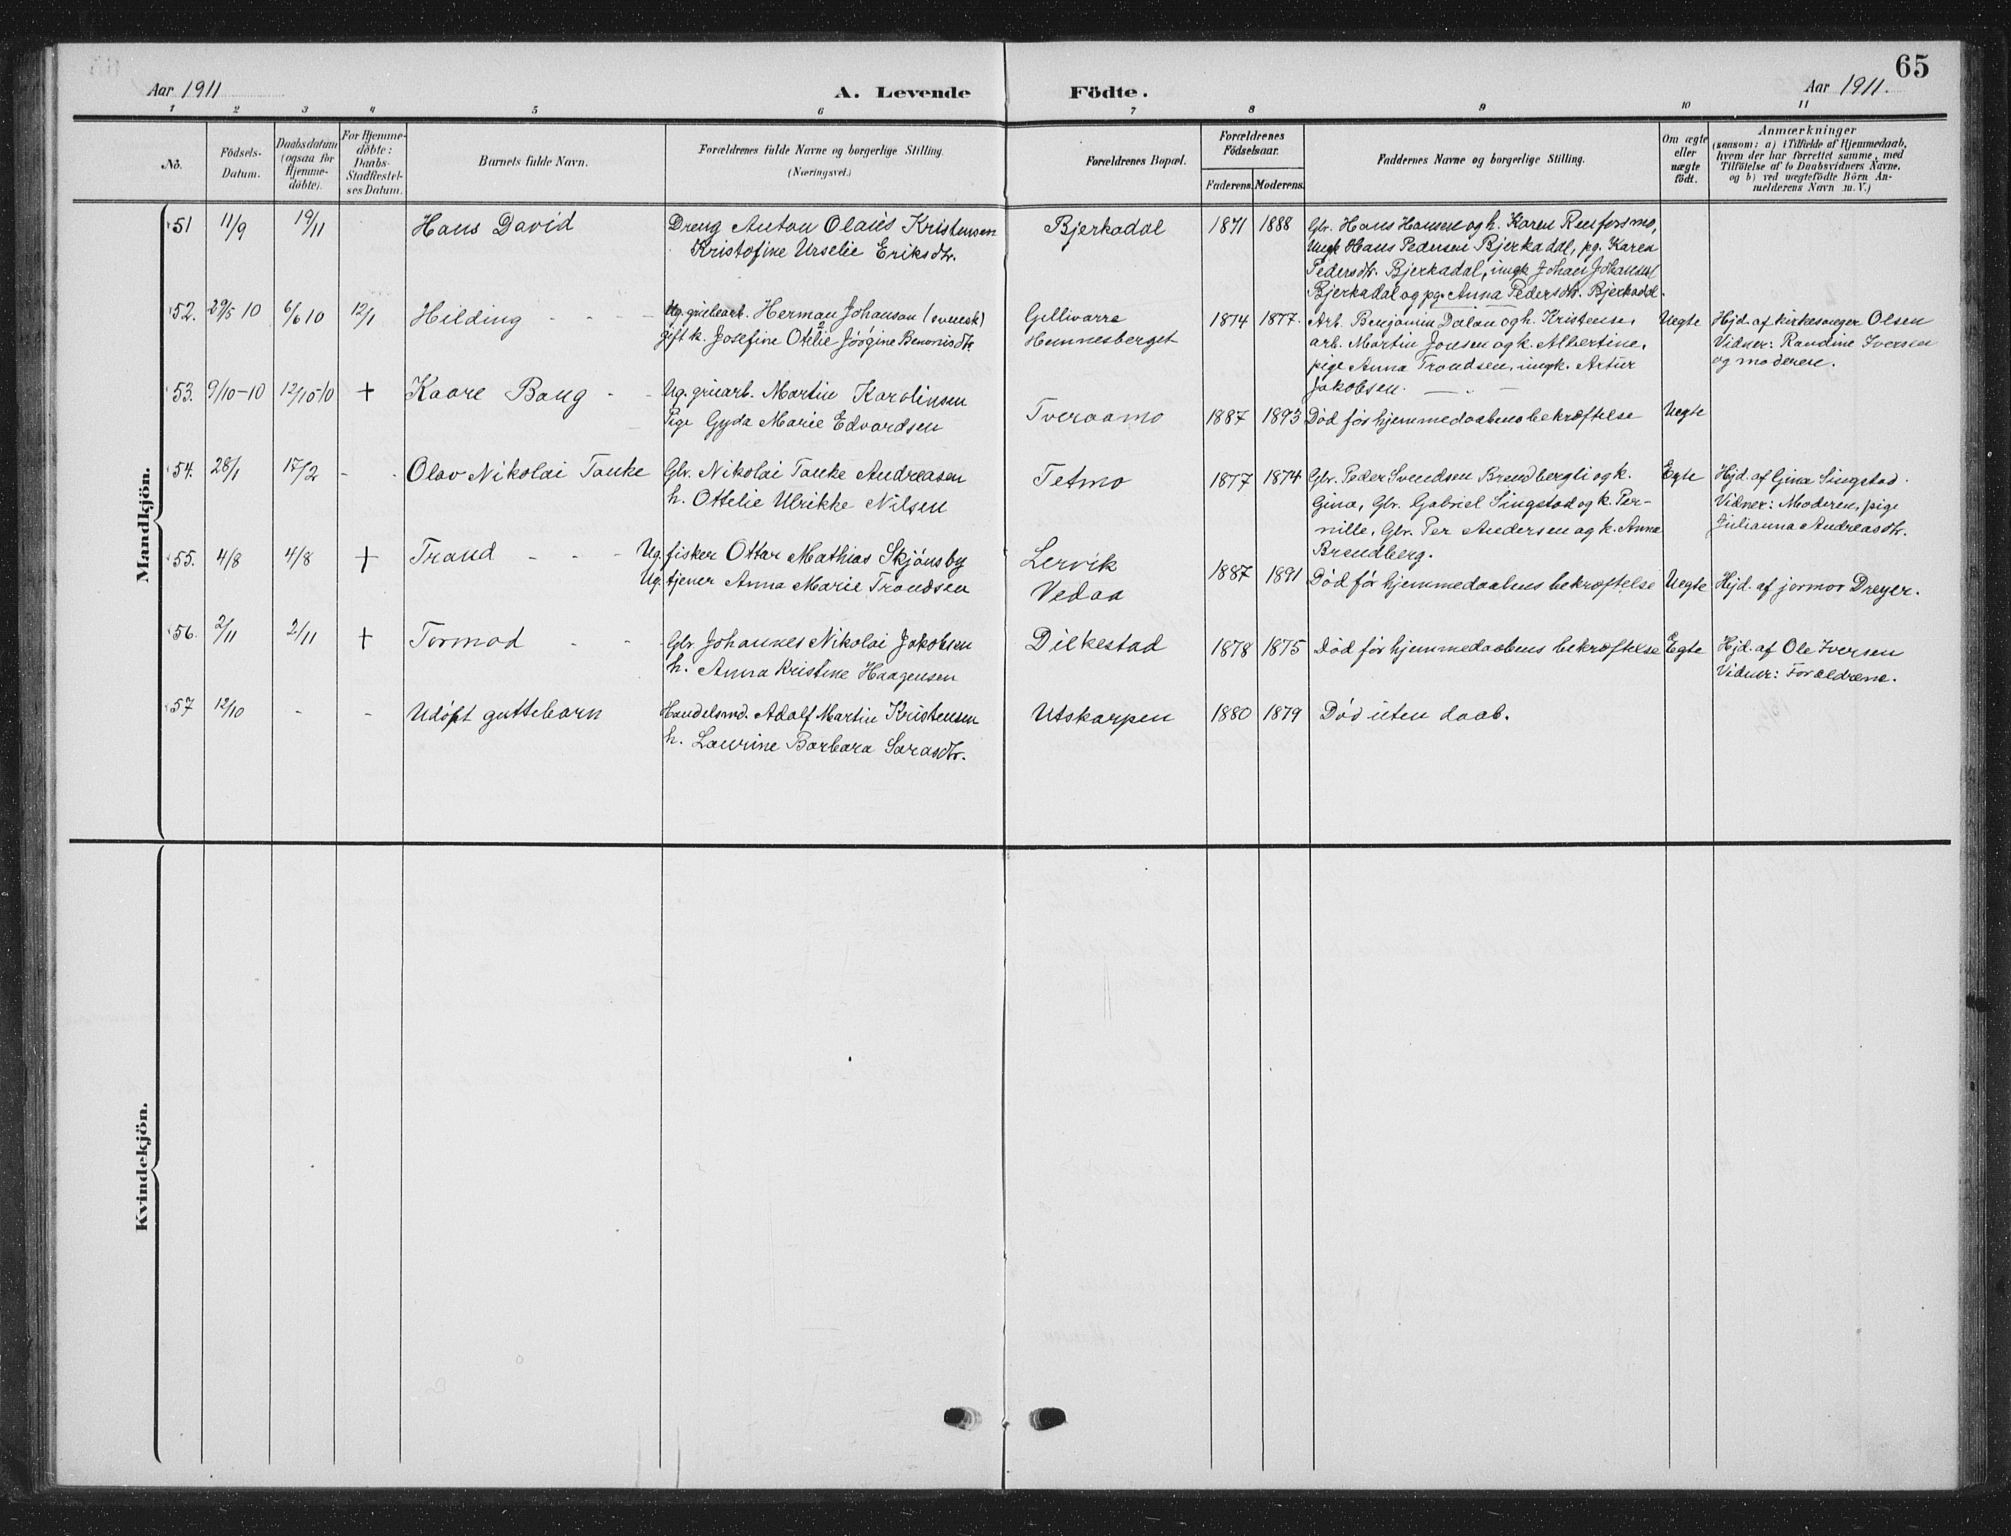 65
Aar 1911
A. Levende
Födte.
Aar 1911.
1 2 3 4 5 6 7 8 9 10 11
No.
Födsels-
Datum.
Daabsdatum
(ogsaa for
Hjemme-
döbte).
For Hjemme-
döbte:
Daabs-
Stadfæstel-
ses Datum.
Barnets fulde Navn.
Forældrenes fulde Navne og borgerlige Stilling.
(Næringsvei.)
Forældrenes Bopæl.
Forældrenes
Födselsaar.
Faderens. Moderens.
Faddernes Navne og borgerlige Stilling.
Om ægte
eller
uægte
födt.
Anmærkninger
(saasom: a) i Tilfælde af Hjemmedaab,
hvem der har forrettet samme, med
Tilföielse af to Daabsvidners Navne,
og b) ved uægtefödte Börn An-
melderens Navn m. V.)
Mandkjön.
51 11/9 19/11 Hans David
Dreng Anton Olaies Kristensen
Kristofine Urselie Eriksdtr.
Bjerkadal 1871 1888
Gbr. Hans Hansen og h. Karen Reinforsmo,
Ungk. Hans Pedersen Bjerkadal, pg. Karen
Pedersdtr. Bjerkadal, ungk Johan Johansen
Bjerkadal og pg. Anna Pedersdtr. Bjerkadal.
52. 29/5 10 6/6 10 12/1 Hilding - - -
Ug. grubearb. Herman Johanson (svensk)
gift k. Josefine Otelie Jörgine Benonisdtr.
Gellivarre
Hemnesberget
1874 1877.
Arb. Benjamin Dalan og h. Kristense,
arb. Martin Jonsen og k. Albertine,
pige Anna Trondsen, ungk. Artur
Jakobsen.
Uegte
Hjd. af kirkesanger Olsen
Vidner: Randine Iversen
og moderen.
53. 9/10-10 12/10-10 + Kaare Bang - -
Ug. gruarb. Martin Karolinsen
Pige Gyda Marie Edvardsen
Tveraamo 1887 1893 Død før hjemmedaabens bekræftelse Uegte
54. 28/1 17/2 - - Olav Nikolai Tanke
Gbr. Nikolai Tanke Andreasen
h. Ottelie Ulrikke Nilsen
Tetmo 1877 1874
Gbr. Peder Svendsen Brendbergli og k.
Gina, Gbr. Gabriel Singstad og k. Per-
nille, Gbr. Per Andersen og k. Anna
Brendberg.
Egte
Hjd. af Gina Singstad.
Vidner: Moderen, pige
Julianna Andreasdtr.
55. 4/8 4/8 + Trond - - -
Ug. fisker Ottar Mathias Skjönsby
Ug. tjener Anna Marie Trondsen
Lervik
Vedaa
1887 1891 Død før hjemmedaabens bekræftelse Uegte Hjd. af jormor Dreyer.
56. 2/11 2/11 + Tormod - -
Gbr Johannes Nikolai Jakobsen
h. Anna Kristine Haagensen
Dilkestad 1878 1875 Død før hjemmedaabens bekræftelse Egte
Hjd. af Ole Iversen
Vidner: Forældrene.
57 12/10 - - Udöpt guttebarn
Handelsmd. Adolf Martin Kristensen
h. Laurine Barbara Sarasdtr.
Utskarpen 1880 1879 Død uten daab.
Kvindekjön.